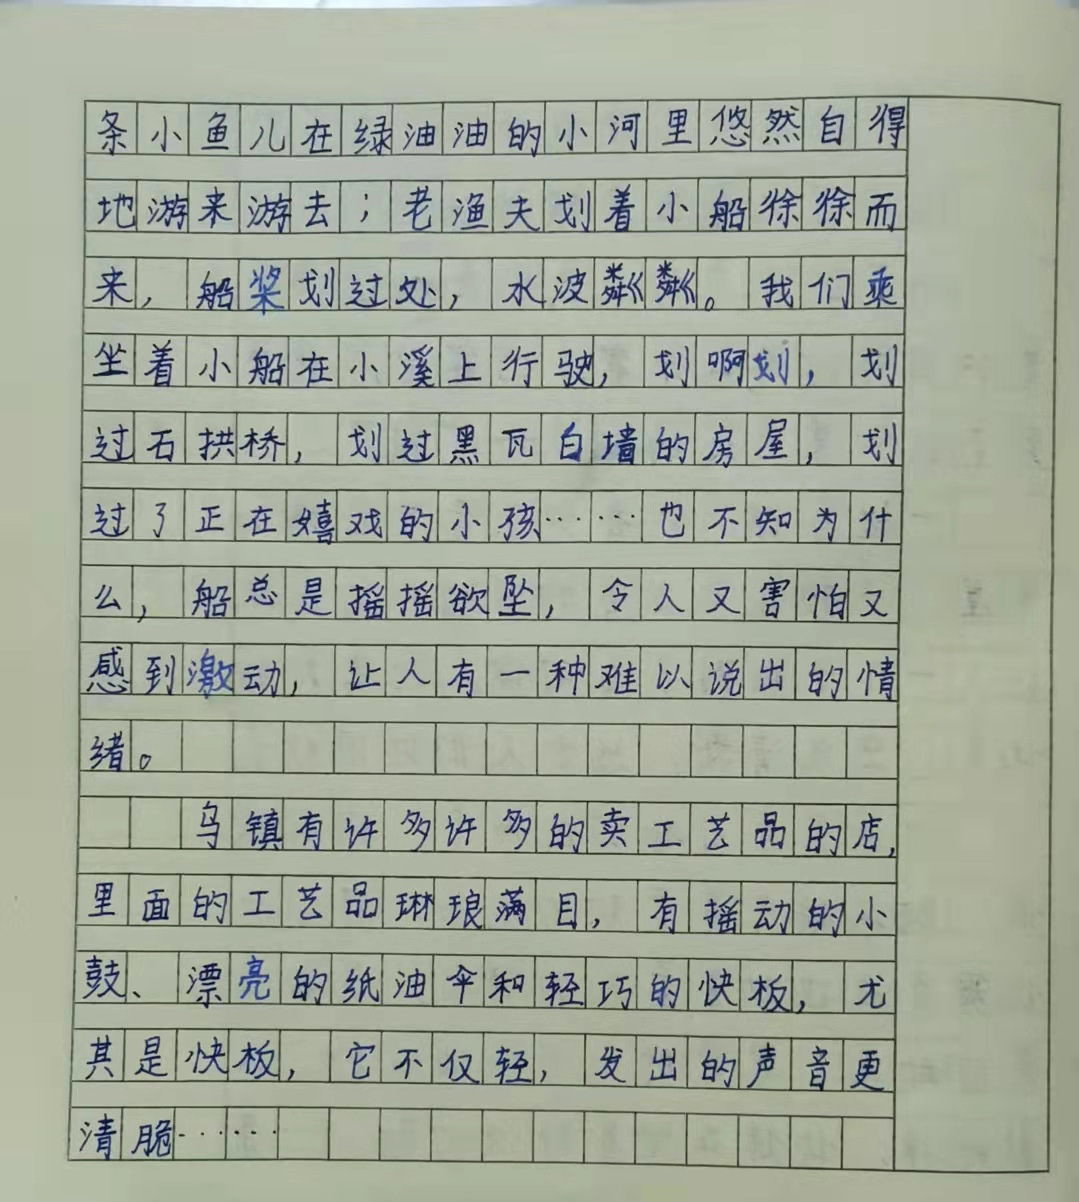 条小鱼儿在绿油油的小河里悠然自得
地游来游去；老渔夫划着小船徐徐而
来，船桨划过处，水波粼粼。我们乘
坐着小船在小溪上行驶，划啊划，划
过石拱桥，划过黑瓦白墙的房屋，划
过了正在嬉戏的小孩……也不知为什
么，船总是摇摇欲坠，令人又害怕又
感到激动，让人有一种难以说出的情
绪。
乌镇有许多许多的卖工艺品的店，
里面的工艺品琳琅满目，有摇动的小
鼓、漂亮的纸油伞和轻巧的快板，尤
其是快板，它不仅轻，发出的声音更
清脆……